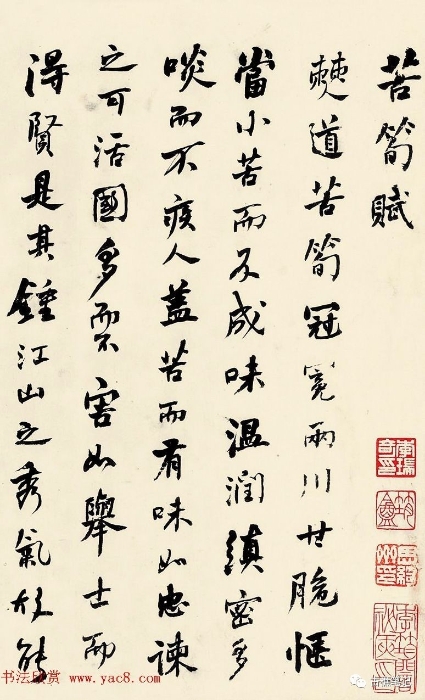 苦筍賦
僰道苦筍冠冕兩川甘脆愜
當小苦而反成味溫潤縝密多
啖而不疾人蓋苦而有味如忠諫
之可活國多而不害如舉士而
得賢是其鍾江山之秀氣故能
书法欣赏 www.yac8.com